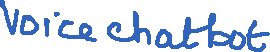 Voice chatbot